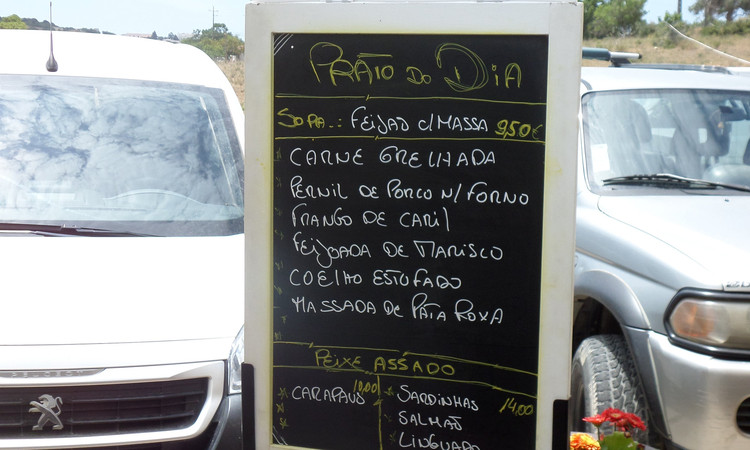 PRATO DO DIA
SOPA.: FEIJAO C/MASSA 9,50€
CARNE GRELHADA
PERNIL DE PORCO N/ FORNO
FRANGO DE CARIL
FEIJOADA DE MARISCO
COELHO ESTUFADO
MASSADA DE PATA ROXA
PEIXE ASSADO
CARAPAUS 10,00
SARDINHAS 14,00
SALMÃO
LINGUADO